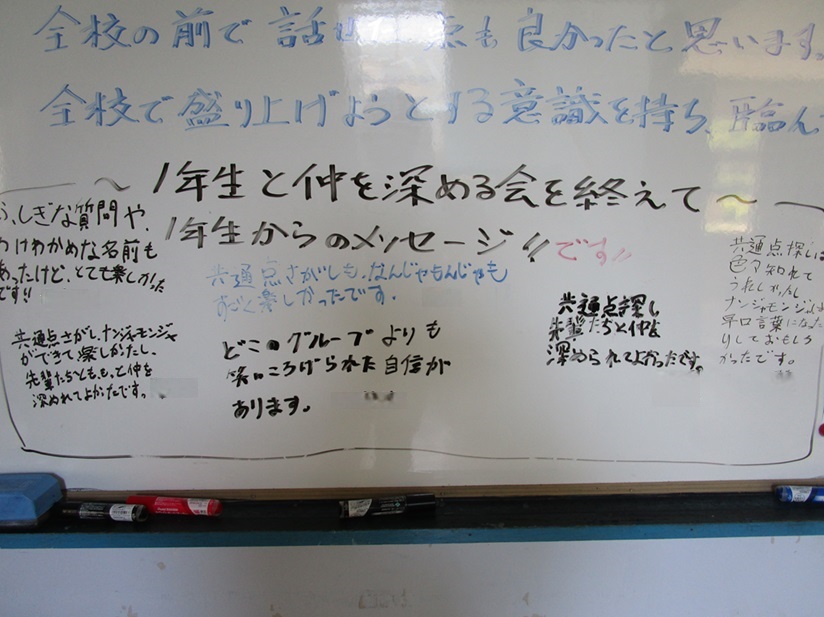 全校の前で話せ 点も良かったと思います。
全校で盛り上げようとする意識を持ち、臨ん
～1年生と仲を深める会を終えて～
1年生からのメッセージ!!です!!
ふしぎな質問や、
わけわかめな名前も
あったけど、とても楽しかった
です!!
共通点さがしも、なんじゃもんじゃも
すごく楽しかったです.
共通点さがし、ナンジャモンジャ
ができて楽しかたし、
先輩たちとももっと仲を
深めれてよかたです。
どこのグループよりも
笑いころげられた自信が
あります。
共通点探し
先輩たちと仲を
深められてよかったです。
共通点探しは
色々知れて
うれしかったし
ナンジャモンジャは
早口言葉になった
りしておもしろ
かったです。